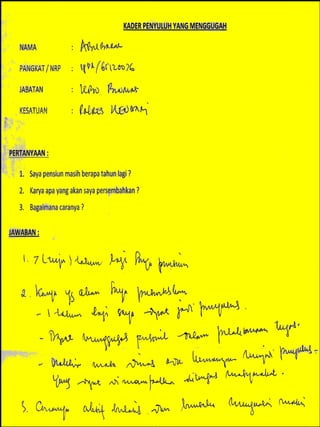 KADER PENYULUH YANG MENGGUGAH
NAMA : ABUBAKAR
PANGKAT / NRP : /65120026
JABATAN : KBO BINMAS
KESATUAN : POLRES KENDARI
PERTANYAAN :
1. Saya pensiun masih berapa tahun lagi ?
2. Karya apa yang akan saya persembahkan ?
3. Bagaimana caranya ?
JAWABAN :
1. 7 (tujuh) tahun lagi Saya pensiun
2. Karya yg akan saya
- 1 tahun lagi saya dpat jadi penyuluh.
- Dapat menggugah personil dalam pelaksanaan tugas.
- masa dinas ada menjadi penyuluh
yang dpat dimanfaatkan dilingkungan masyarakat.
3. Caranya aktif dan menguasai materi